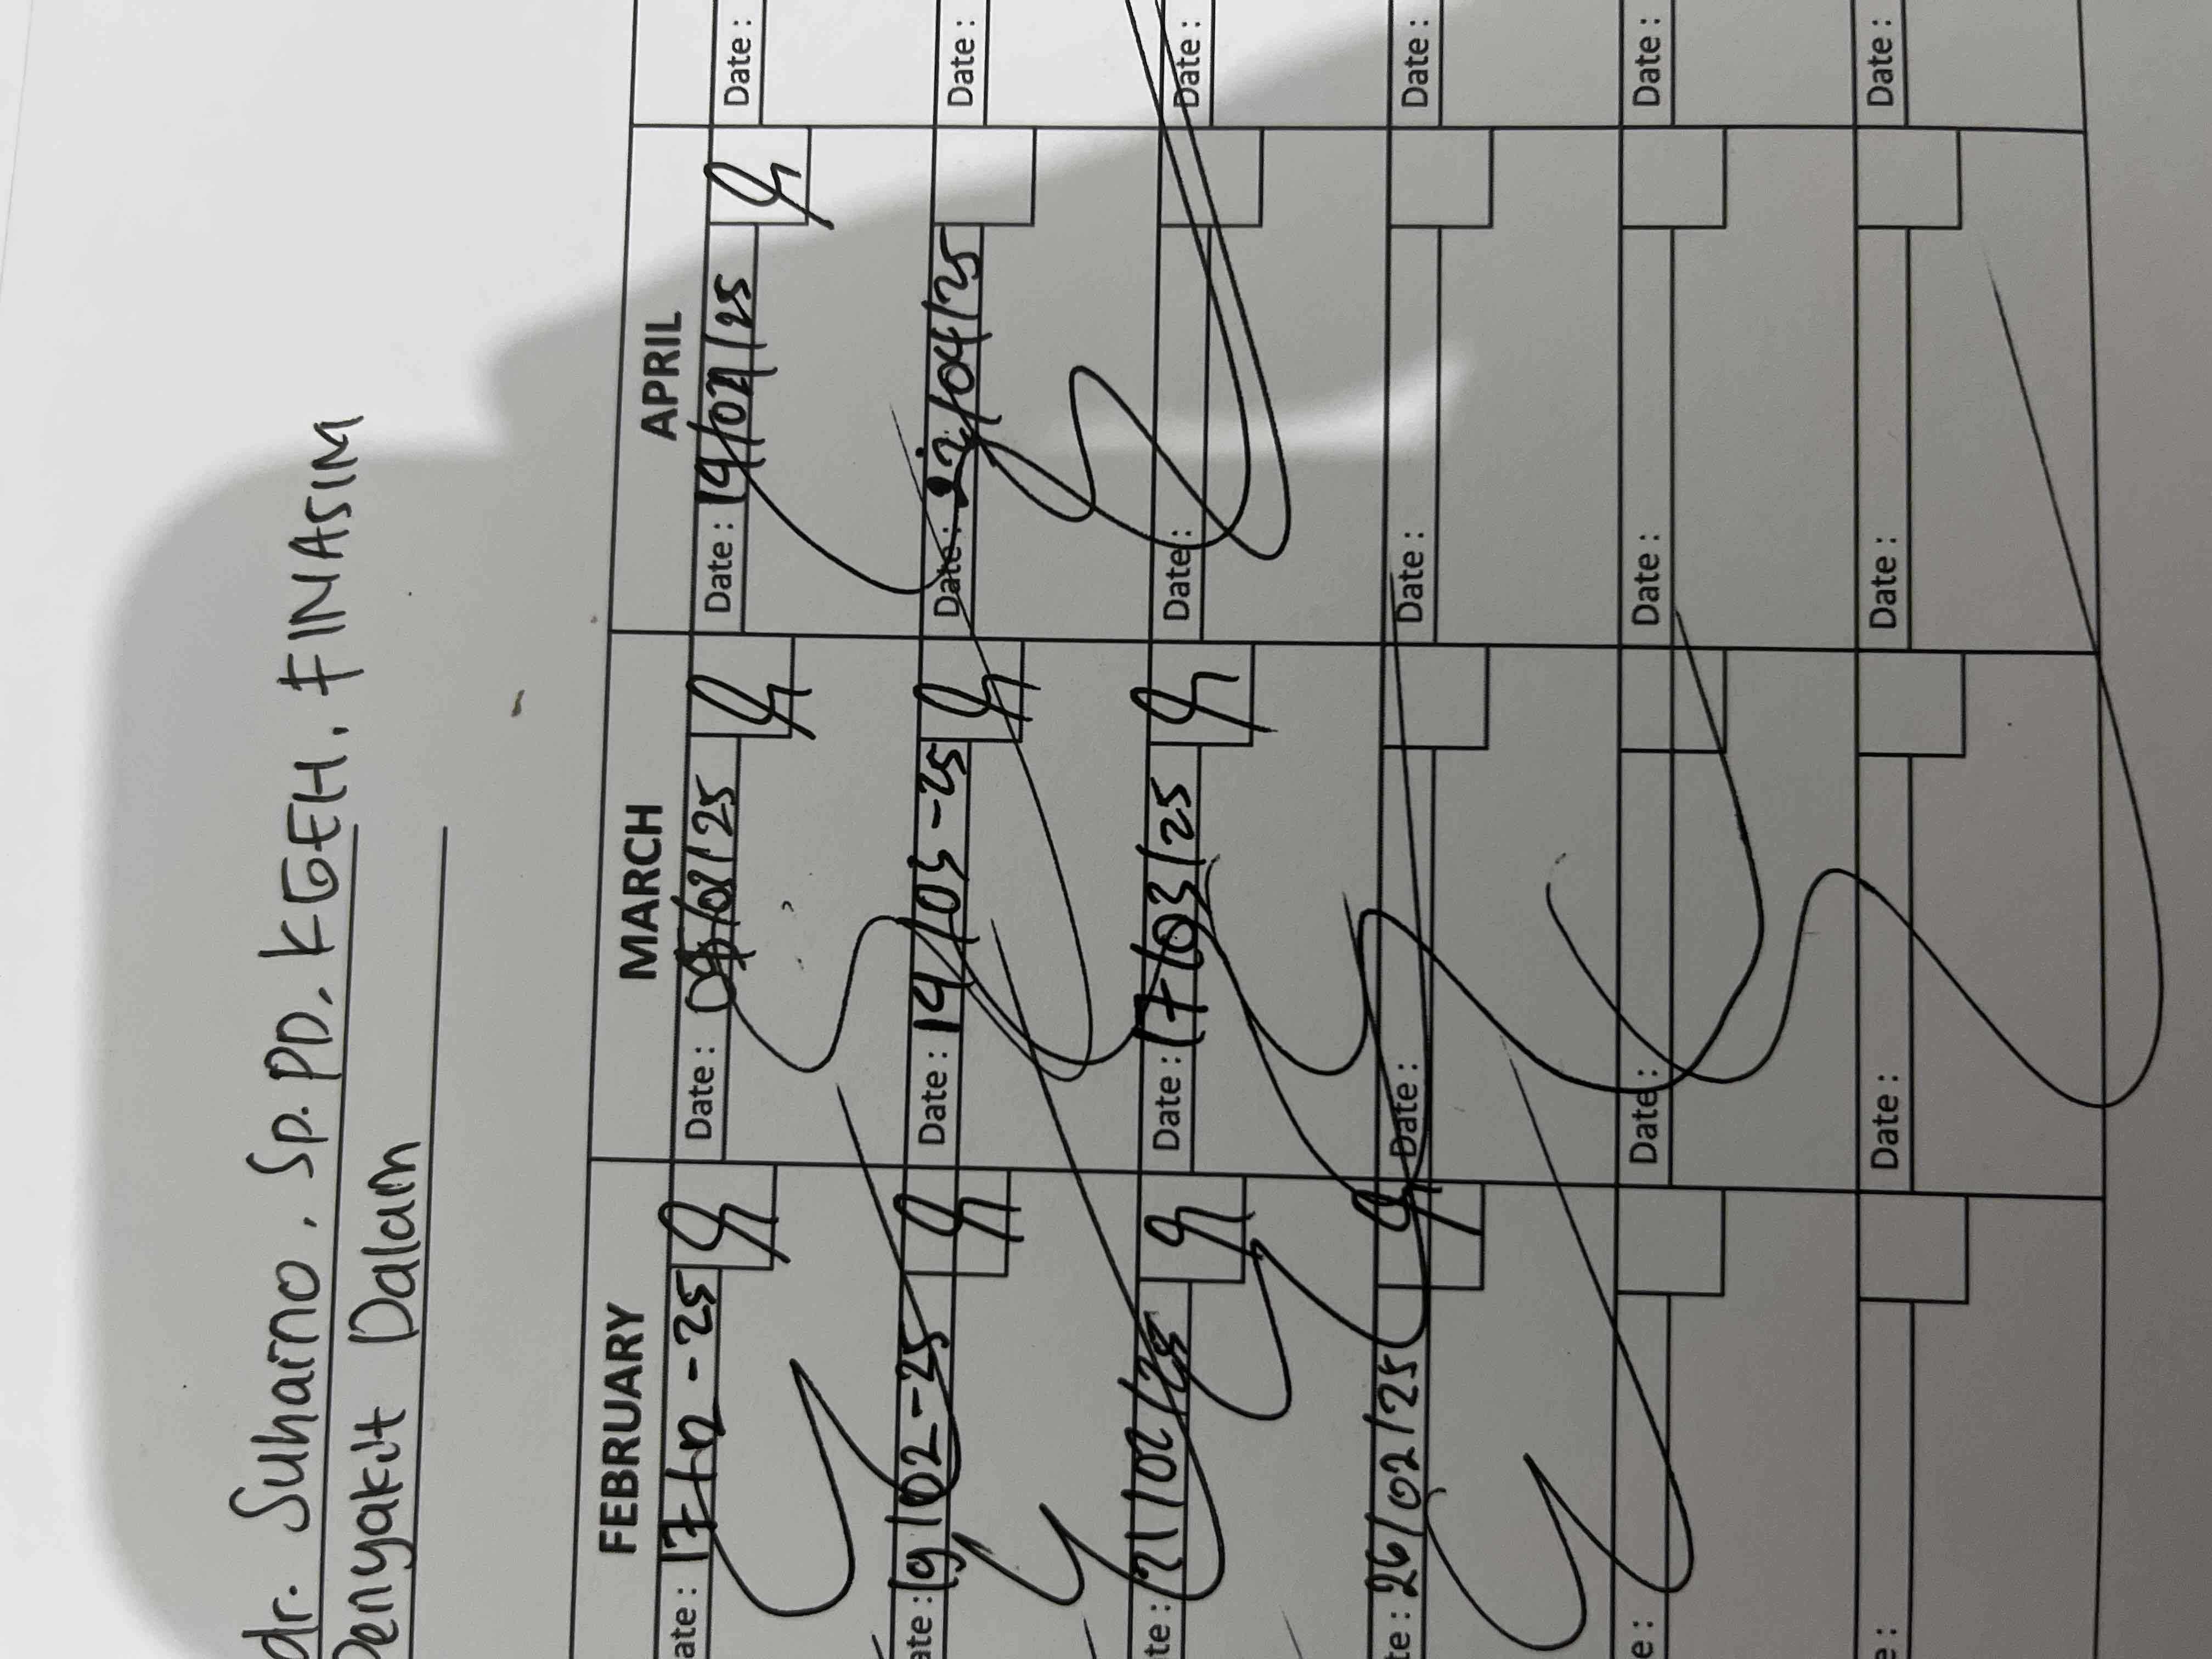 dr. Suharno, Sp. PD, KGEH. FINASIM
Penyakit Dalam
FEBRUARY MARCH APRIL
ate : 17-02-25 Date : /25 Date : 14/ /25 Date :
ate : 19/02-25 Date : 14/03-25 Date : 22/04/25 Date :
te : 21/02/25 Date : 17/03/25 Date : Date :
te : 26/02/25 Date : Date : Date :
e : Date : Date : Date :
e : Date : Date : Date :